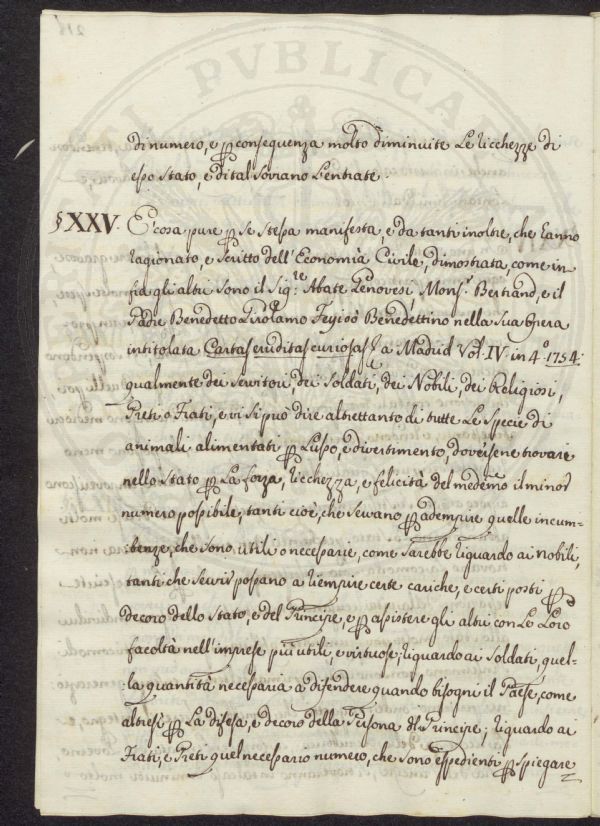 di numero, e p conseguenza molto diminuite Le ricchezze di
esso Stato, e di tal Sovrano L'entrate.
§XXV. E' cosa pure p se stessa manifesta, e da tanti inoltre, che hanno
ragionato, e scritto dell'Economia Civile, dimostrata, come in-
fra gli altri sono il Sig.re Abate Genovesi, Mons.r Bertrand, e il
Padre Benedetto Girolamo Feyjoò Benedettino nella sua Opera
intitolata Cartas eruditas curiosas &c a Madrid Vol. IV. in 4.o 1754:
qualmente dei servitori, dei Soldati, dei Nobili, dei Religiosi,
Preti o Frati, e vi si può dire altrettanto di tutte Le Specie di
animali alimentati p Lusso, e divertimento, doversene trovare
nello Stato p La forza, ricchezza, e felicità del medemo il minor
numero possibile, tanti cioè, che servano p adempire quelle incum-
:benze, che sono utili o necessarie, come sarebbe riguardo ai nobili,
tanti che servir possano a riempire certe cariche, e certi posti p
decoro dello Stato, e del Principe, e p assistere gli altri con Le Loro
facoltà nell'imprese più utili, e virtuose; riguardo ai Soldati, quel-
:la quantità necessaria a difendere quando bisogni il Paese, come
altresì p La difesa, e decoro della Persona del Principe; riguardo ai
Frati, e Preti quel necessario numero, che sono espedienti p spiegare